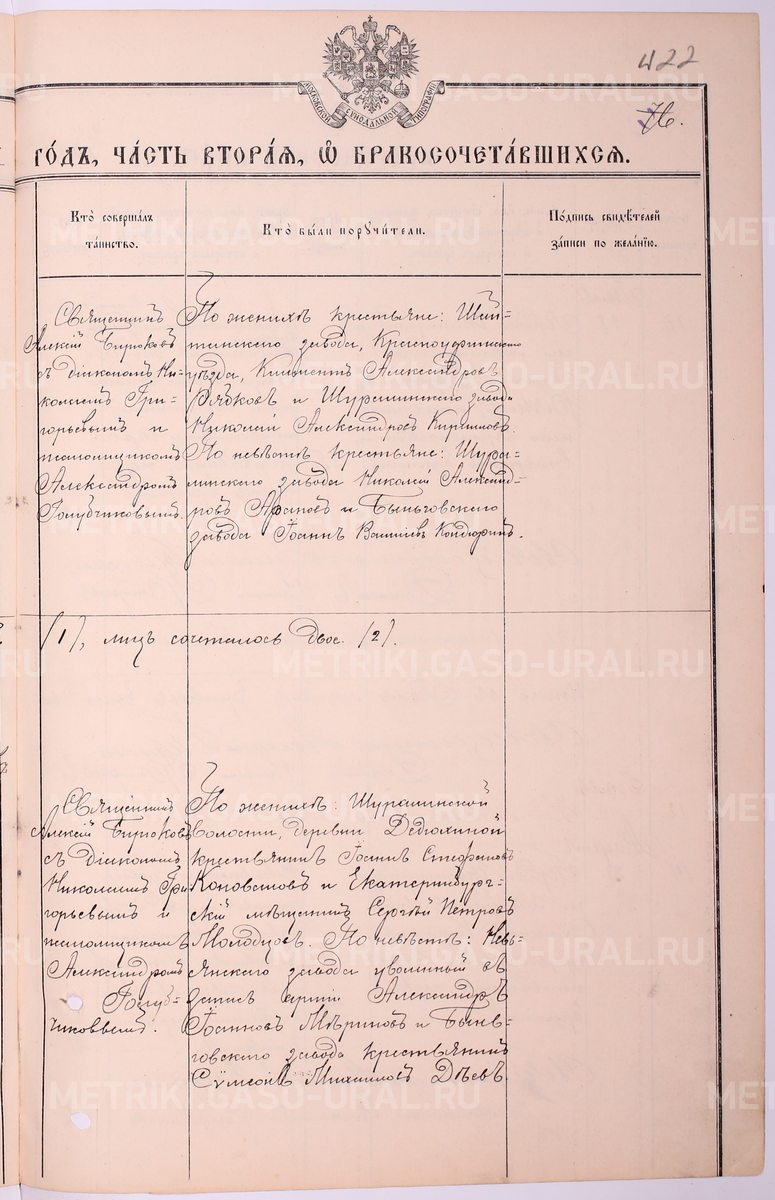 422
76.
МОСКОВСКОЙ СѴНОДАЛЬНОЙ ТИПОГРАФІИ
ГОДЪ, ЧАСТЬ ВТОРАЯ, Ѿ БРАКОСОЧЕТАВШИХСЯ.
Кто совершалъ таинство.
Кто были поручители.
Подпись свидѣтелей записи по желанію.
Священникъ
Алексій Бирюковъ
съ діакономъ Ни-
колаемъ Гри-
горьевымъ и
псаломщикомъ
Александромъ
Голубчиковымъ.
По женихѣ крестьяне: Шай-
танскаго завода, Красноуфимскаго
уѣзда, Климентъ Александровъ
Рябковъ и Шуралинскаго завода
Николай Александровъ Кирилловъ.
По невѣстѣ крестьяне: Шура-
линскаго завода Николай Александ-
ровъ и Быньговскаго
завода Іоаннъ Васильевъ
(1), лицъ сочеталось двое (2).
Священникъ
Алексій Бирюковъ
съ діакономъ
Николаемъ Гри
горьевымъ и
псаломщикомъ
Александромъ
Голуб-
чиковымъ.
По женихѣ: Шуралинской
волости, деревни
крестьянинъ Іоаннъ Стефановъ
Коноваловъ и Екатеринбург-
скій мѣщанинъ Сергѣй Петровъ
Молодцовъ. По невѣстѣ: Невь-
янскаго завода уволенный въ
запасъ арміи Александръ
Іоанновъ Мѣриновъ и Бынь-
говскаго завода крестьянинъ
Сѵмеонъ Михаиловъ Дѣевъ.
METRIKI.GASO-URAL.RU